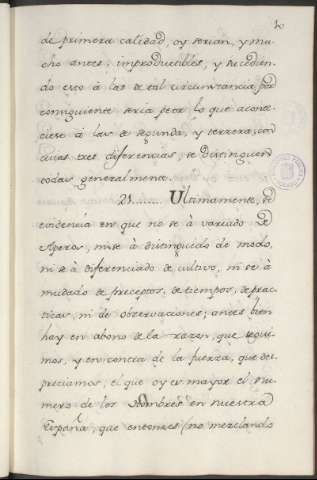 de primera calidad, oy serian, y mu
cho antes, improductibles, y sucedien
do eso à las de tal circunstancia, por
consiguiente seria peor lo que aconte
ciese à las de segunda, y tercera, con
cuias tres diferencias, se distinguen
todas generalmente.
21....... Ultimamente, se
evidencia en que no se à variado de
Aperos, ni se à distinguido de modo,
ni se à diferenciado de cultivo, ni se à
mudado de preceptos, de tiempos, de prac
ticas, ni de observaciones; antes bien
hay en abono de la razon, que segui
mos, y en contra de la fuerza, que des
preciamos, el que oy es mayor el Nu
mero de los Hombres en nuestra
España, que entonces (no mezclando